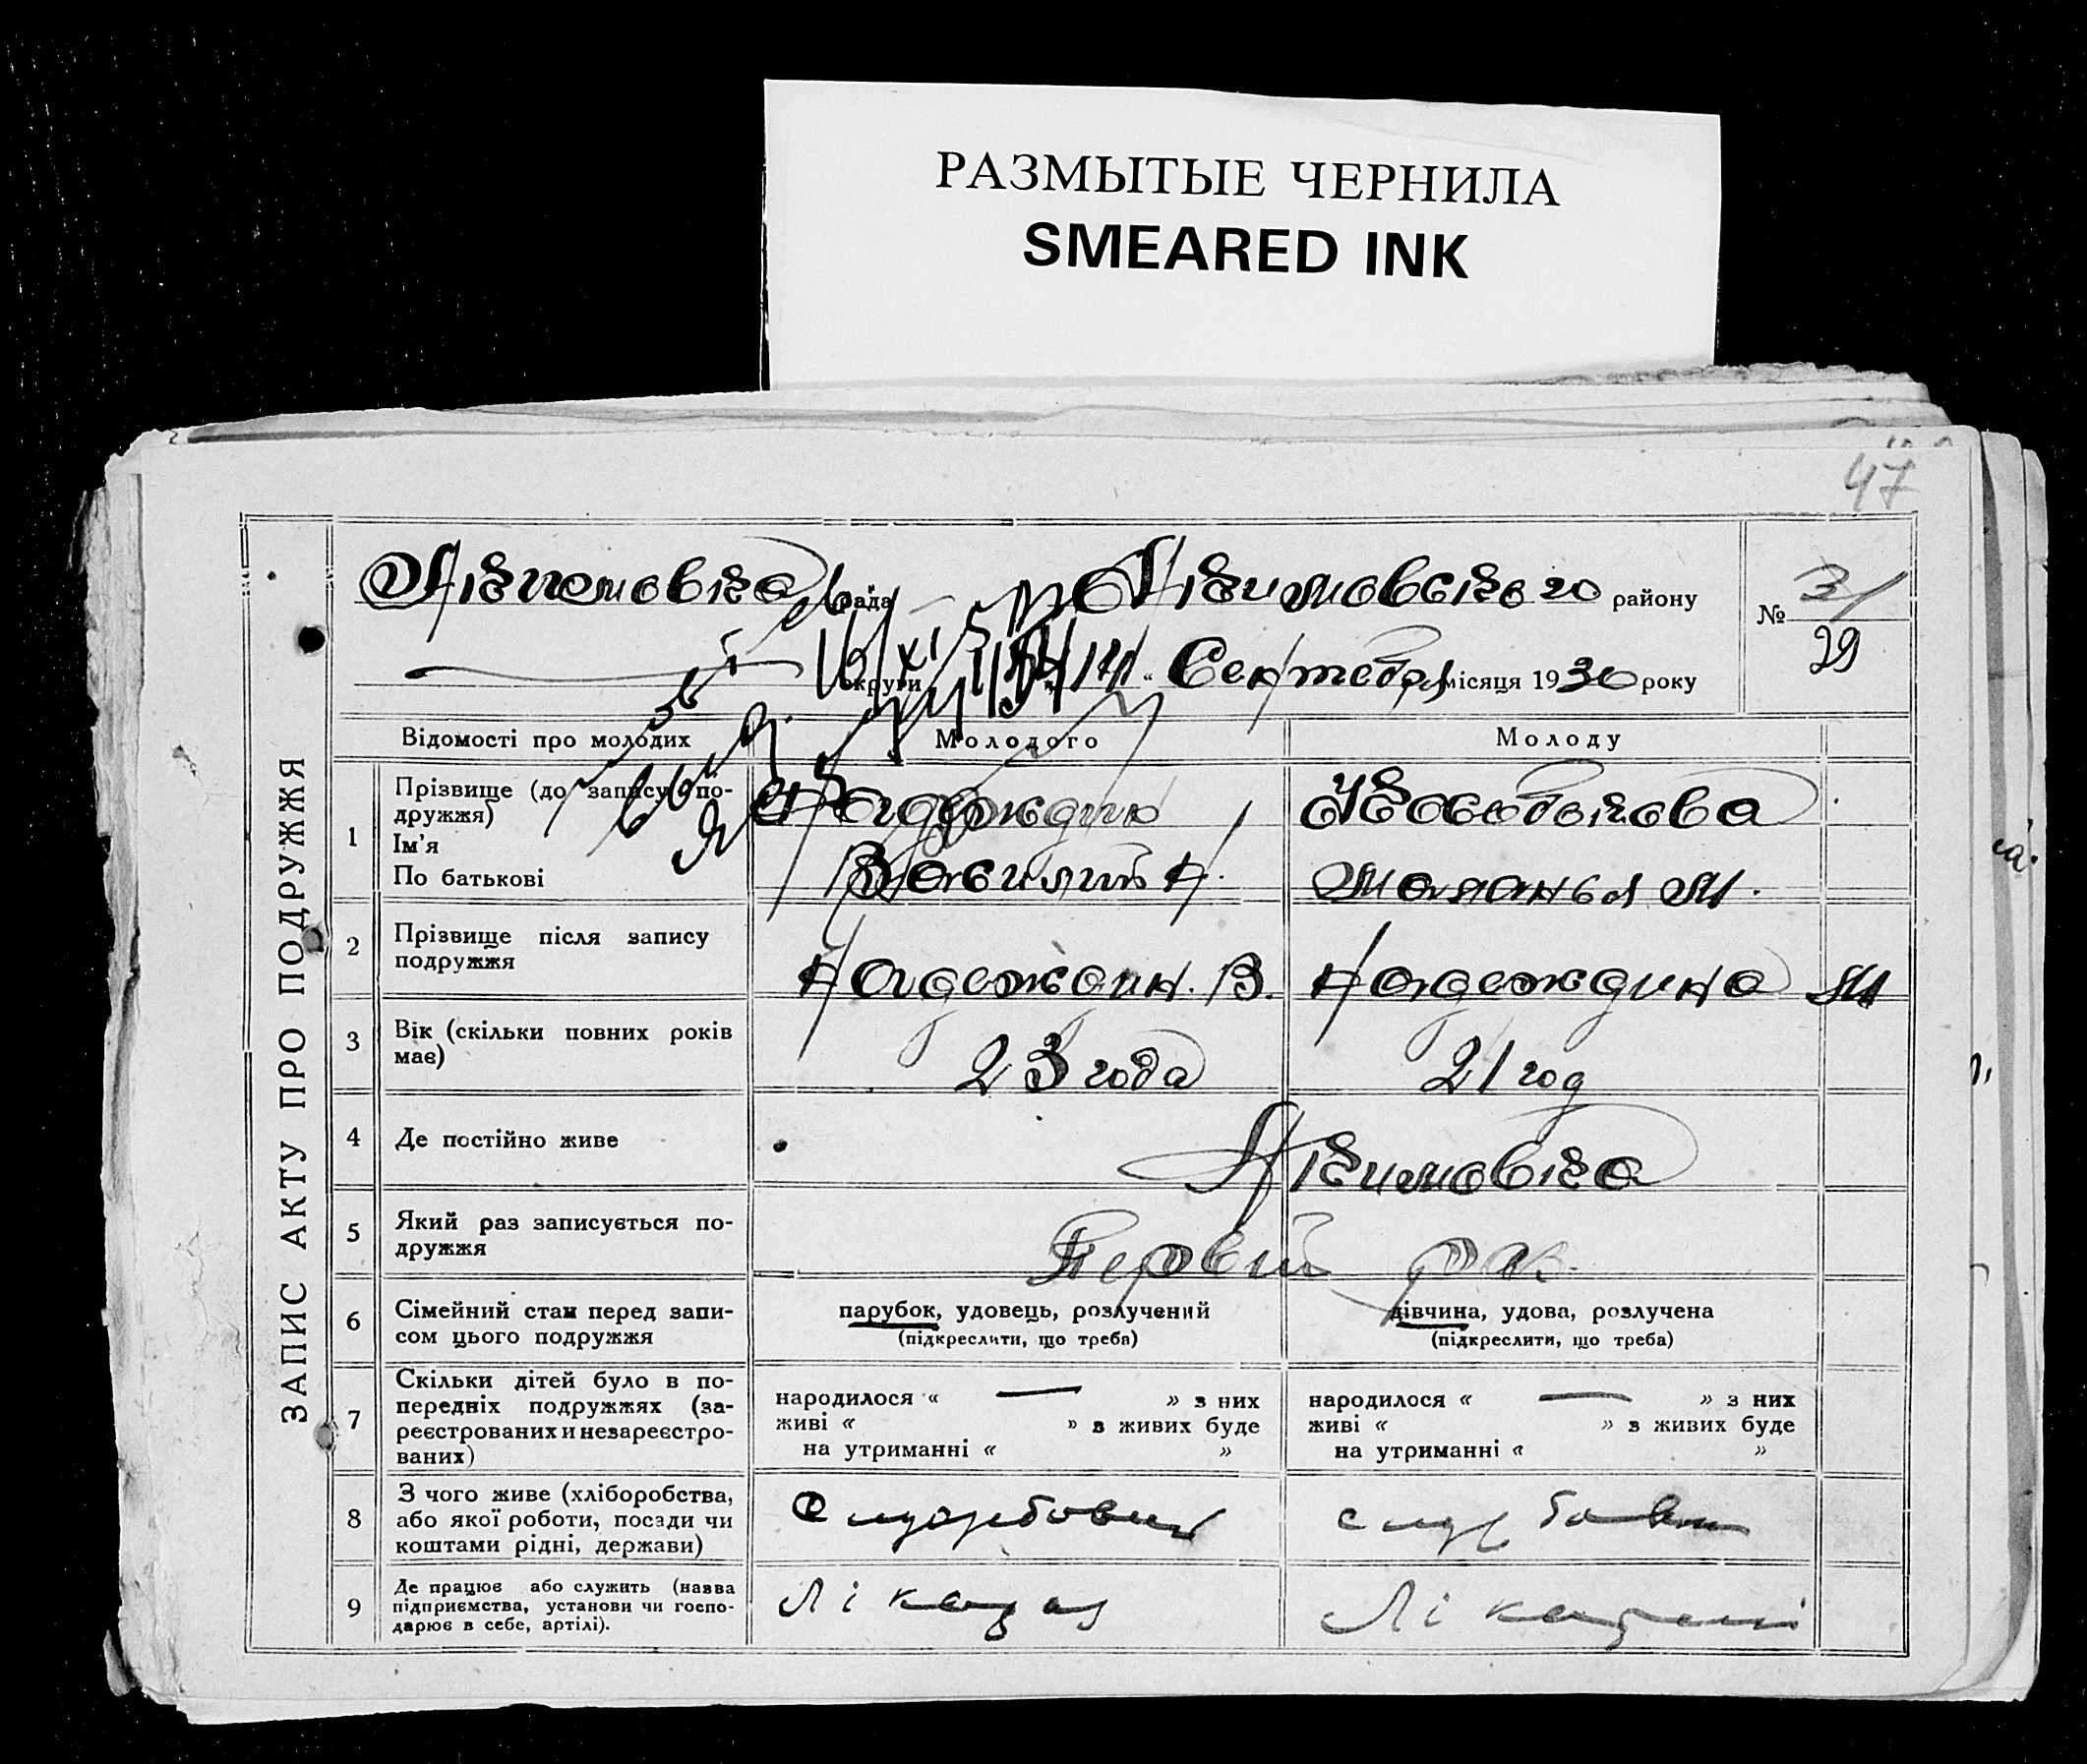 РАЗМЫТЫЕ ЧЕРНИЛА
SMEARED INK
47
ЗАПИС АКТУ ПРО ПОДРУЖЖЯ
рада Акимовского району
№ 31
29
округи Сентября місяця 1930 року
Відомості про молодих
Молодого
Молоду
1
Прізвище (до запису по-
дружжя)
Ім'я
По батькові
Василий Н.
Меланья М.
2
Прізвище після запису
подружжя
Надеждин. В.
Надеждина М
3
Вік (скільки повних років
має)
23 года
21 год
4
Де постійно живе
Акимовка
5
Який раз записується по-
дружжя
Первий раз.
6
Сімейний стан перед запи-
сом цього подружжя
парубок, удовець, розлучений
(підкреслити, що треба)
дівчина, удова, розлучена
(підкреслити, що треба)
7
Скільки дітей було в по-
передніх подружжях (за-
реєстрованих и незареєстро-
ваних)
народилося « — » з них
живі « » в живих буде
на утриманні « »
народилося « — » з них
живі « » з живих буде
на утриманні « »
8
З чого живе (хліборобства,
або якої роботи, посади чи
коштами рідні, держави)
9
Де працює або служить (назва
підприємства, установи чи госпо-
дарює в себе, артілі).